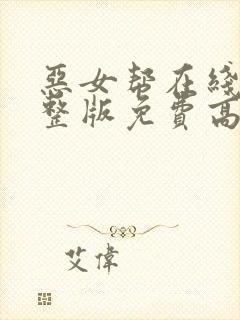 惡女幫在綫
整版免費高
艾偉